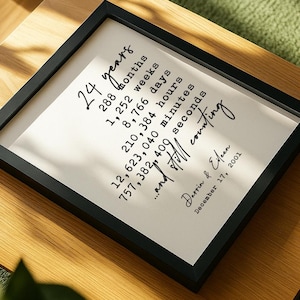 24 years
288 months
1,252 weeks
8,766 days
210,384 hours
12,623,040 minutes
757,382,400 seconds
...and still counting
Derrin & Ellen
December 17, 2001